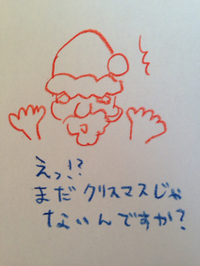 えっ!?
まだクリスマスじゃ
ないんですか?